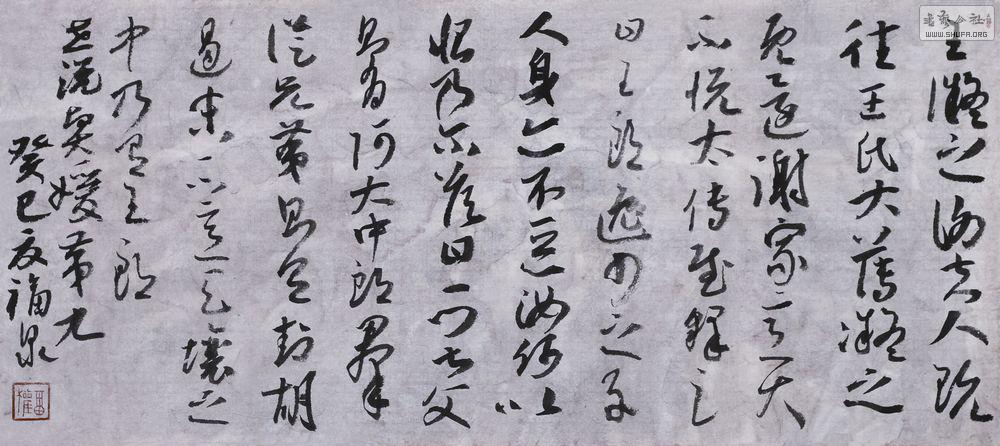 王凝之謝夫人既
往王氏大薄凝之
既還謝家意大
不悅太傅慰釋之
曰王郎逸少之子
人身亦不惡汝何以
恨乃尔答曰一門叔父
則有阿大中郎羣
從兄弟則有封胡
遏末不意天壤之
中乃有王郎
世說賢媛第九
癸巳夏福泉
书艺公社
WWW.SHUFA.ORG